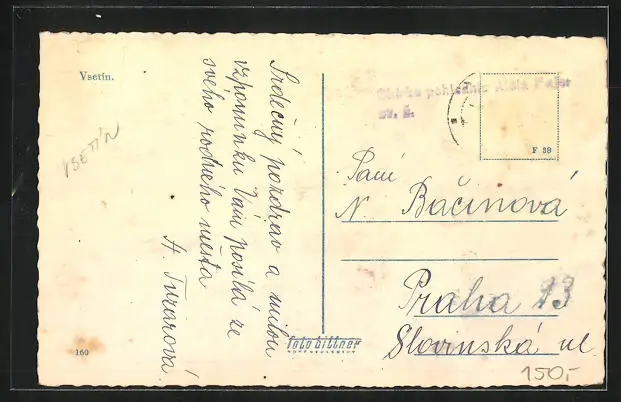 Vsetín.
VSETÍN
Srdečný pozdrav a milou
vzpomínku Vám posílá ze
svého rodného města
A. Tvrarová
160
foto bittner
Sbírka pohlednic
F 39
Paní
N. Bačinová
Praha 13
Slovinská ul.
150,-